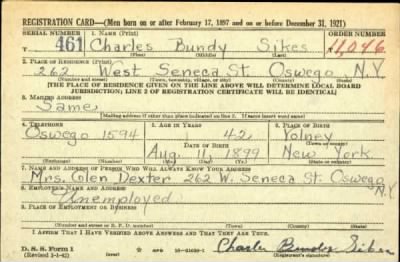 REGISTRATION CARD—(Men born on or after February 17, 1897 and on or before December 31, 1921)
SERIAL NUMBER 1. NAME (Print) ORDER NUMBER
461 Charles Bundy Sikes 11,046
(First) (Middle) (Last)
2. PLACE OF RESIDENCE (Print)
262 West Seneca St. Oswego N.Y.
(Number and street) (Town, township, village, or city) (County) (State)
[THE PLACE OF RESIDENCE GIVEN ON THE LINE ABOVE WILL DETERMINE LOCAL BOARD
JURISDICTION; LINE 2 OF REGISTRATION CERTIFICATE WILL BE IDENTICAL]
3. MAILING ADDRESS
Same
[Mailing address if other than place indicated on line 2. If same insert word same]
4. TELEPHONE 5. AGE IN YEARS 6. PLACE OF BIRTH
Oswego 1594 42 Volney
DATE OF BIRTH (Town or county)
Aug. 11 1899 New York
(Exchange) (Number) (Mo.) (Day) (Yr.) (State or country)
7. NAME AND ADDRESS OF PERSON WHO WILL ALWAYS KNOW YOUR ADDRESS
Mrs. Glen Dexter 262 W. Seneca St. Oswego N.Y.
8. EMPLOYER'S NAME AND ADDRESS
Unemployed
9. PLACE OF EMPLOYMENT OR BUSINESS
(Number and street or R. F. D. number) (Town) (County) (State)
I AFFIRM THAT I HAVE VERIFIED ABOVE ANSWERS AND THAT THEY ARE TRUE.
D. S. S. Form 1
(Revised 1-1-42) (over) 16-21630-1 Charles Bundy Sikes